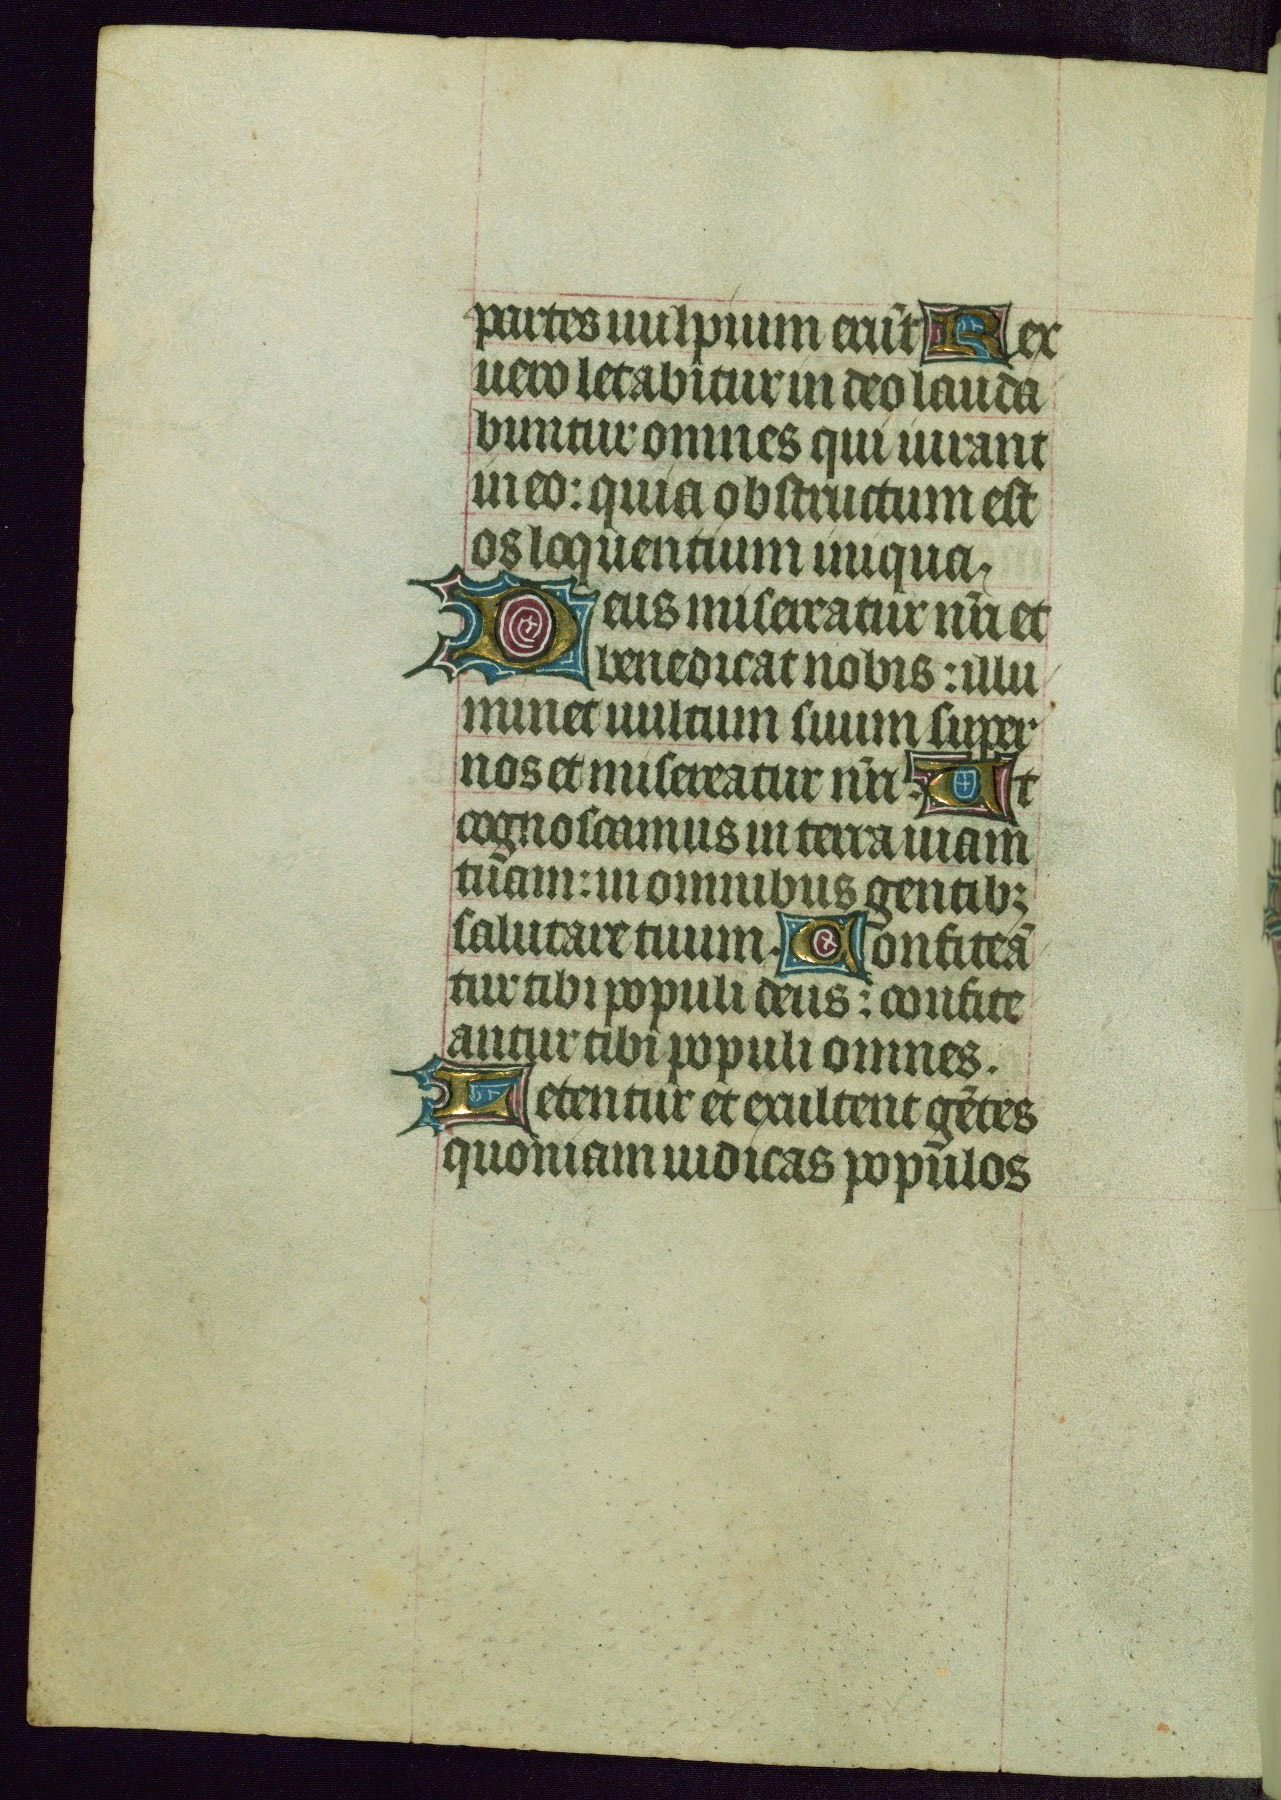 partes uulpium erūt Rex
uero letabitur in deo lauda
buntur omnes qui iurant
in eo: quia obstructum est
os loquentium iniqua.
Deus misereatur nr̄i et
benedicat nobis: illu
minet uultum suum super
nos et misereatur nr̄i. Ut
cognoscamus in terra uiam
tuam: in omnibus gentibꝫ
salutare tuum. Confiteā
tur tibi populi deus: confite
antur tibi populi omnes.
Letentur et exultent gētes
quoniam iudicas populos